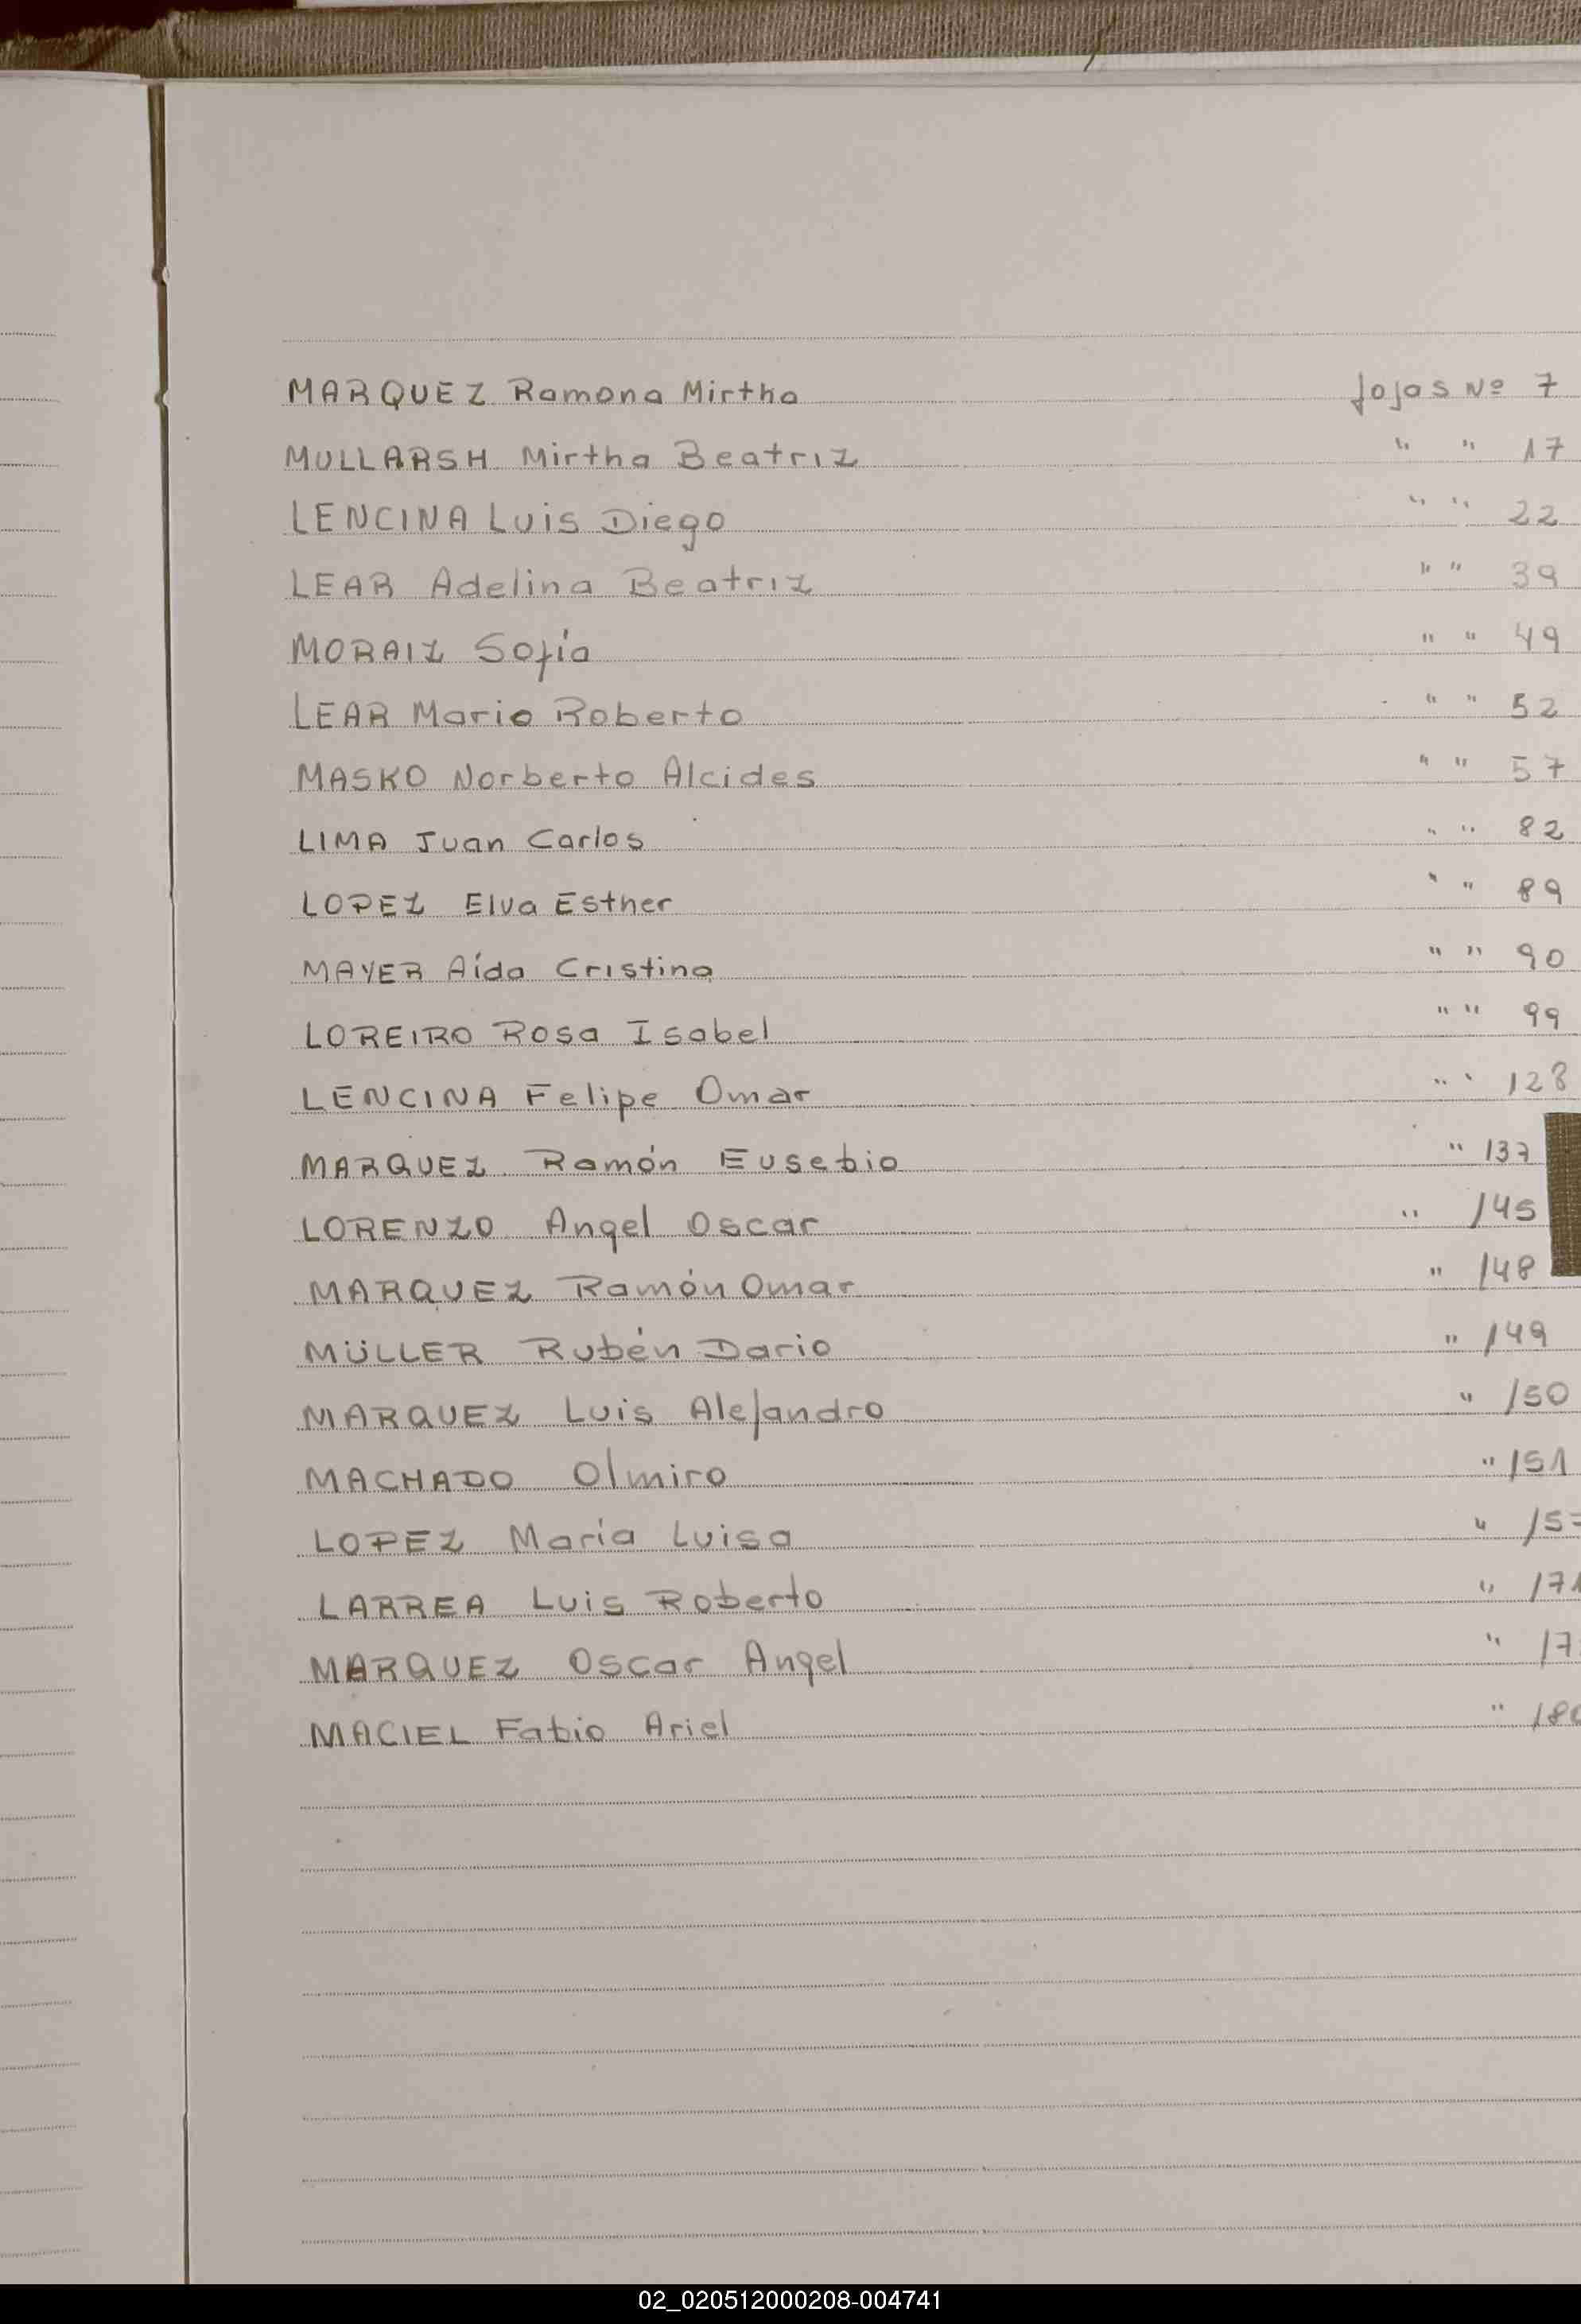 MARQUEZ Ramona Mirtha fojas Nº 7
MULLARSH Mirtha Beatriz " " 17
LENCINA Luis Diego " " 22
LEAR Adelina Beatriz " " 39
MORAIZ Sofía " " 49
LEAR Mario Roberto " " 52
MASKO Norberto Alcides " " 57
LIMA Juan Carlos " " 82
LOPEZ Elva Esther " " 89
MAYER Aída Cristina " " 90
LOREIRO Rosa Isabel " " 99
LENCINA Felipe Omar " " 128
MARQUEZ Ramón Eusebio " 137
LORENZO Angel Oscar " 145
MARQUEZ Ramón Omar " 148
MÜLLER Rubén Dario " 149
MARQUEZ Luis Alejandro " 150
MACHADO Olmiro " 151
LOPEZ María Luisa "
LARREA Luis Roberto " 171
MARQUEZ Oscar Angel "
MACIEL Fabio Ariel "
02_020512000208-004741